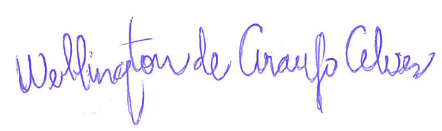 Wellington de Araujo Alves